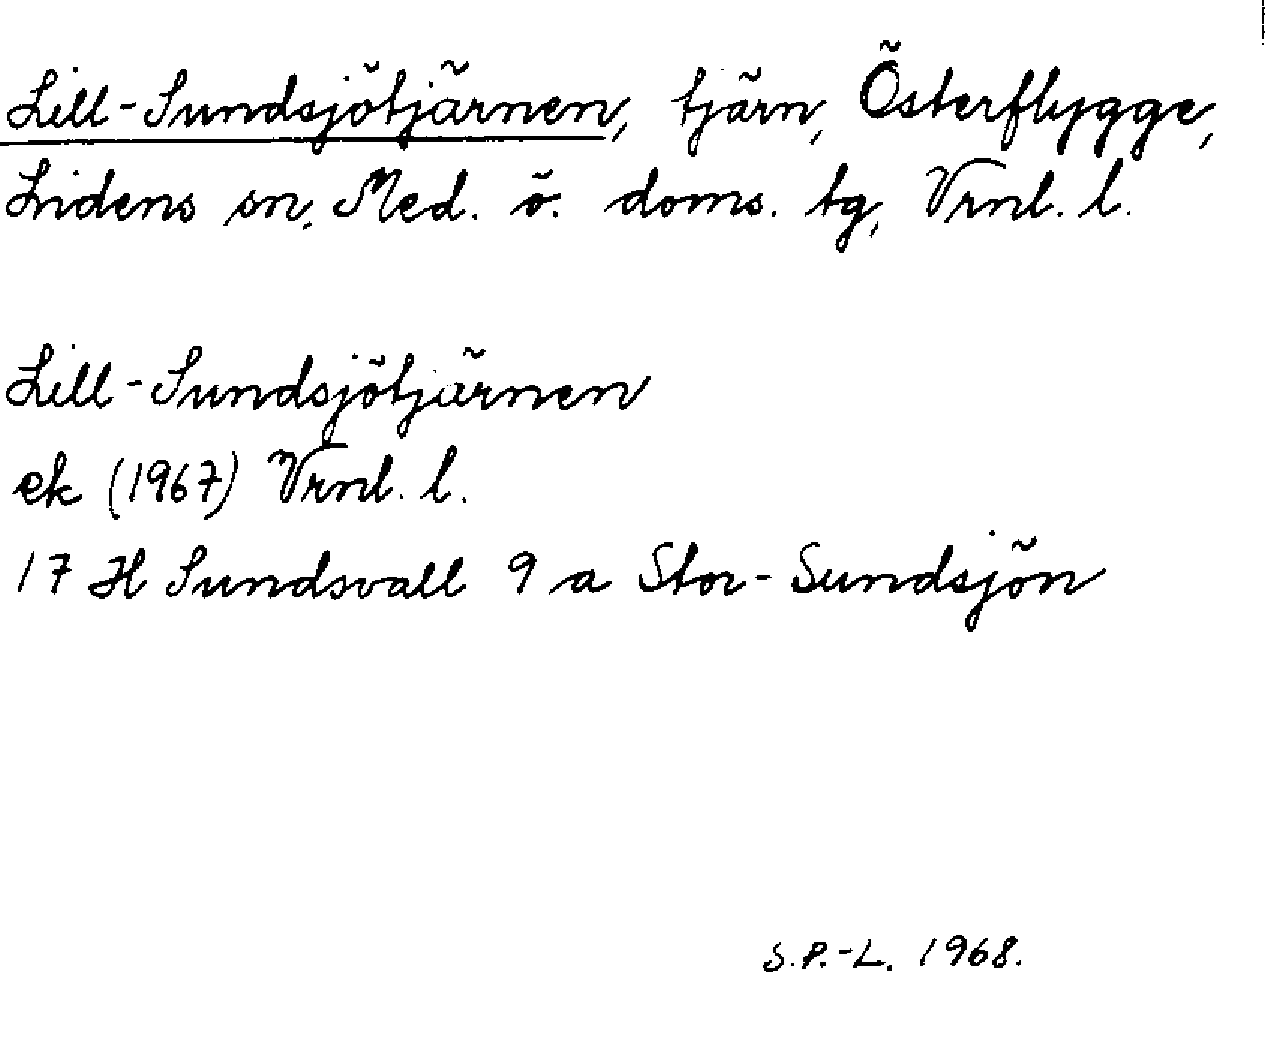 Lill-Sundsjötjärnen, tjärn, Österflygge,
Lidens sn, Med. ö. doms. tg, Vrnl. l.
Lill-Sundsjötjärnen
ek (1967) Vrnl. l.
17 H Sundsvall 9 a Stor-Sundsjön
S.P.-L. 1968.